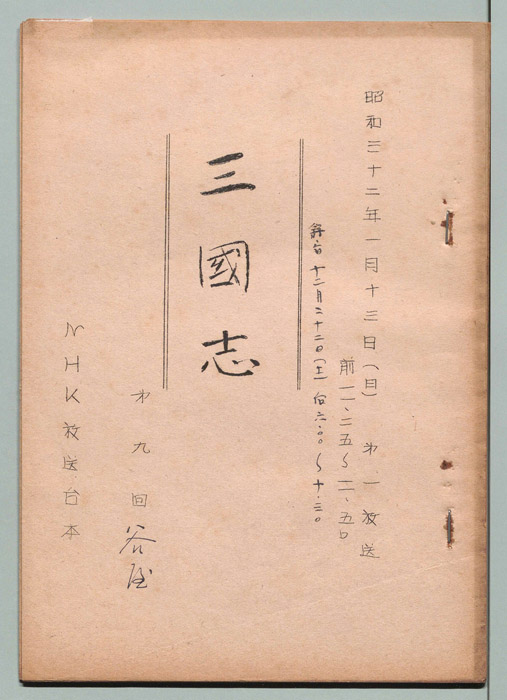 昭和三十二年一月十三日(日) 第一放送
前一一、二五〜一一、五〇
十二月二十二日(土) 后六.〇〇〜十.三〇
三國志
第九回 谷屋
NHK放送台本